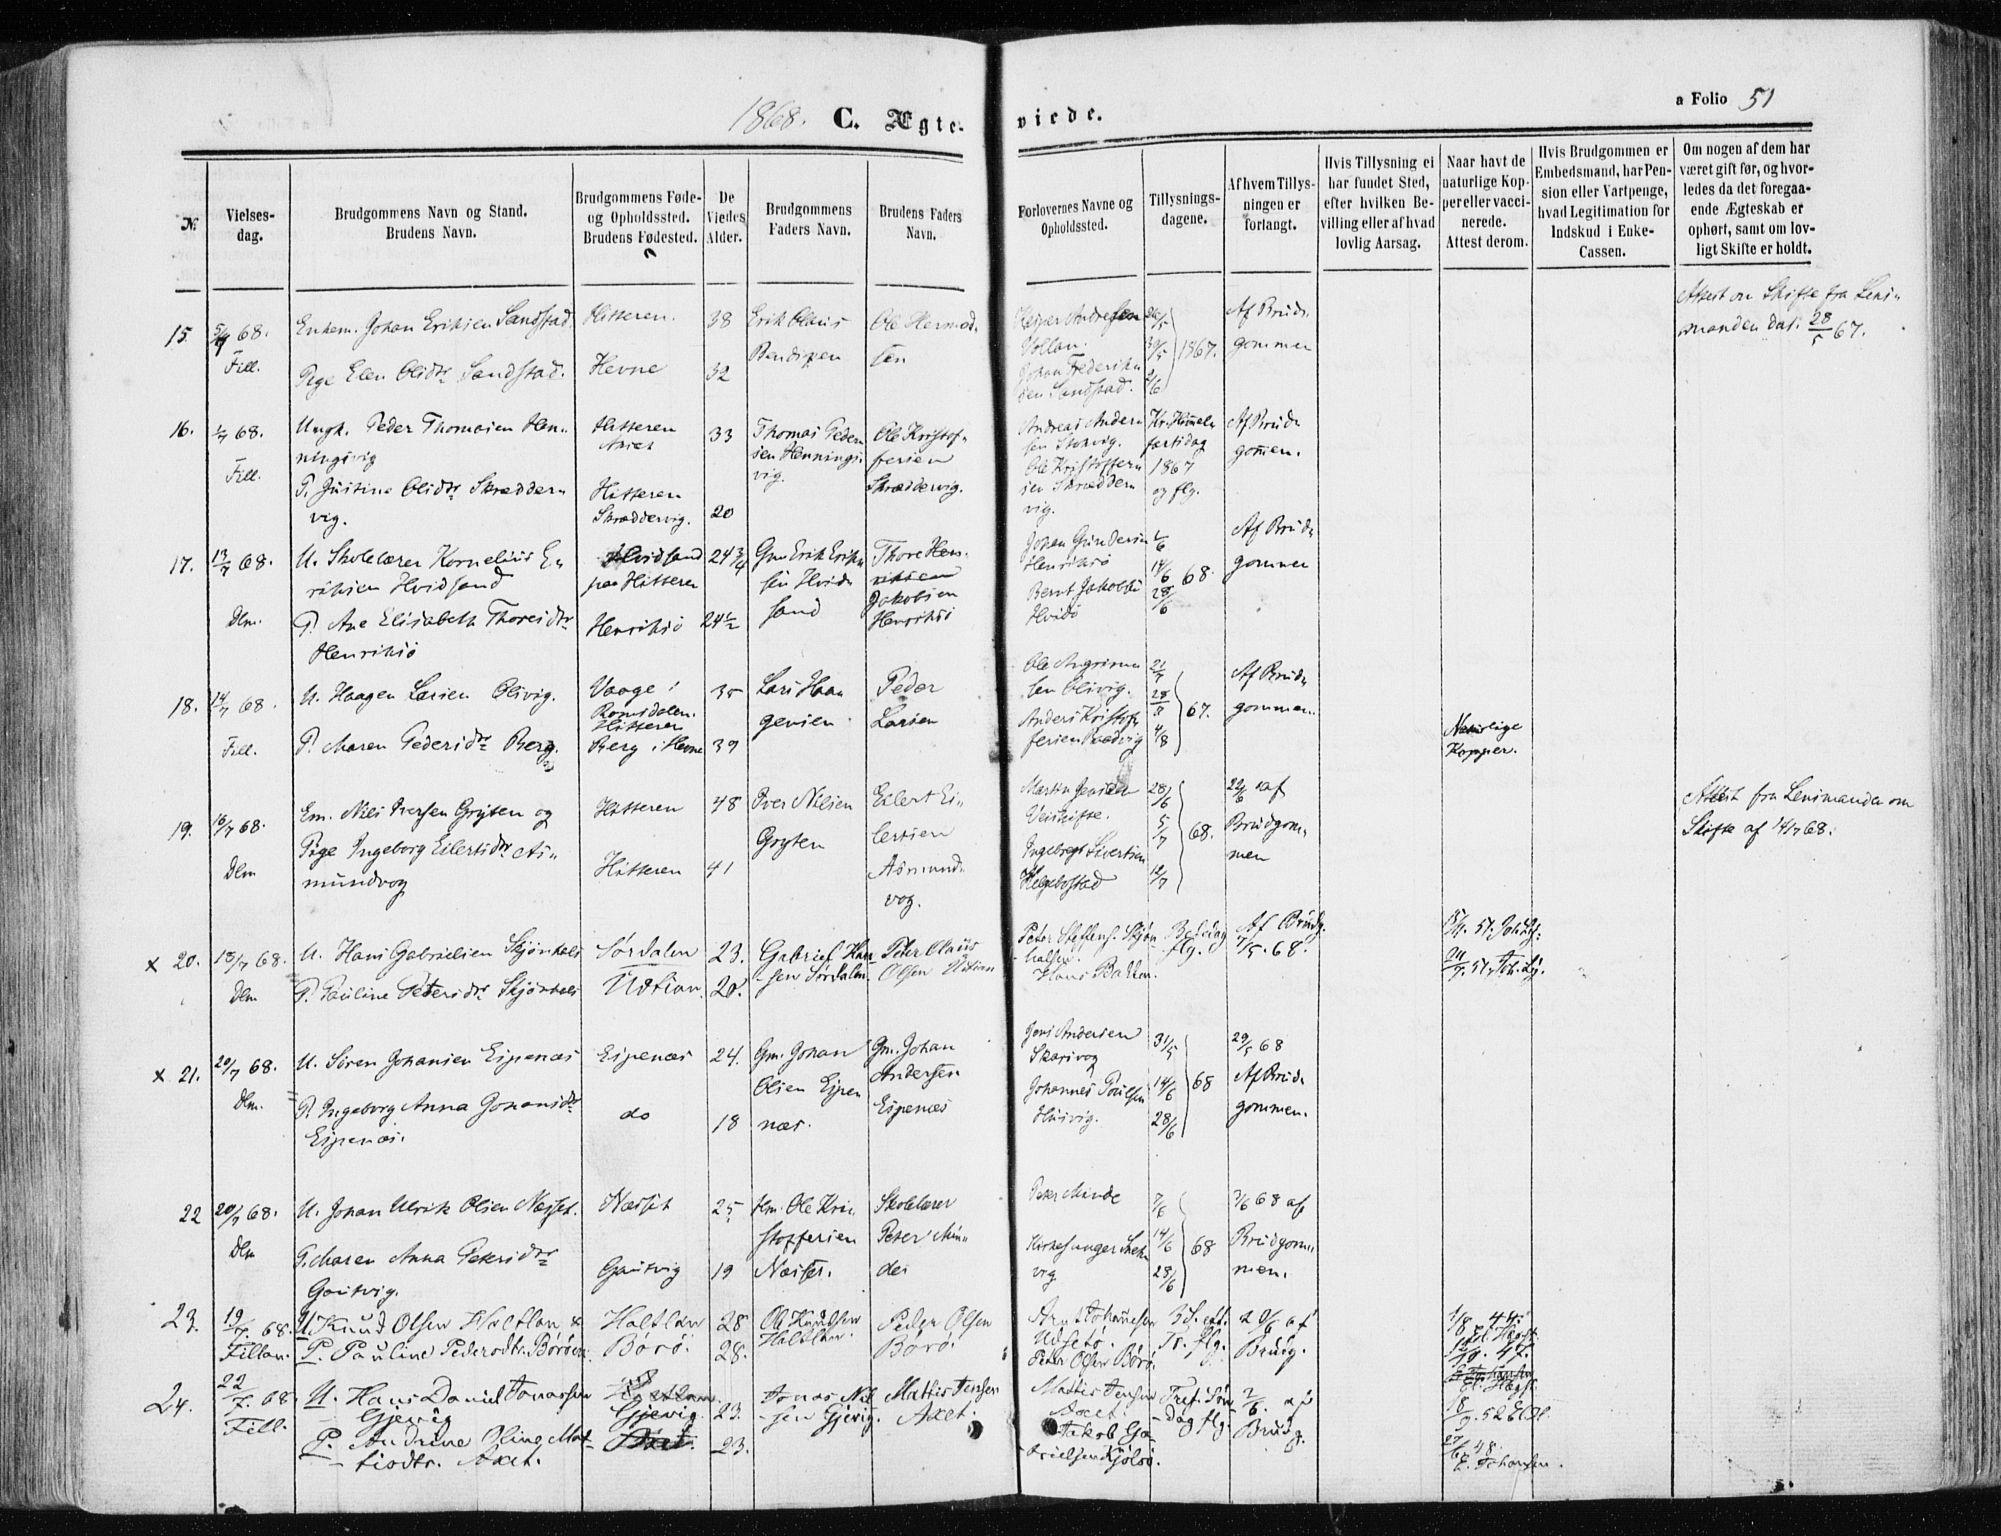 1868. C. Ægte-
viede.
a Folio 51
№
Vielses-
dag.
Brudgommens Navn og Stand.
Brudens Navn.
Brudgommens Føde-
og Opholdssted.
Brudens Fødested.
De
Viedes
Alder.
Brudgommens
Faders Navn.
Brudens Faders
Navn.
Forlovernes Navne og
Opholdssted.
Tillysnings-
dagene.
Af hvem Tillys-
ningen er
forlangt.
Hvis Tillysning ei
har fundet Sted,
efter hvilken Be-
villing eller af hvad
lovlig Aarsag.
Naar havt de
naturlige Kop-
per eller vacci-
nerede.
Attest derom.
Hvis Brudgommen er
Embedsmand, har Pen-
sion eller Vartpenge,
hvad Legitimation for
Indskud i Enke-
Cassen.
Om nogen af dem har
været gift før, og hvor-
ledes da det foregaa-
ende Ægteskab er
ophørt, samt om lov-
ligt Skifte er holdt.
15. 68.
Fill.
Enkem. Johan Eriksen Sandstad.
Pige Elen Olsdtr Sandstad.
Hitteren.
Hevne
38
32
Erik Olaus
Ole Hermod
sen
Vollan.
Johan Frederik
sen Sandstad.
1867.
Af Brud
gommen
Attest om Skifte fra Lens
manden dat. 28/5 67.
16. 1/7 68.
Fill.
Ungk. Peder Thomasen Hen
ningsvig
P. Justine Olsdtr Skrædder
vig.
Hitteren
Hitteren
Skræddervig.
33
20
Thomas Peder
sen Hennings
vig.
Ole Kristof
fersen
Skræddervig.
Andreas Ander
sen
Ole Kristoffer
sen Skrædder
vig.
Kr. Himmel
fartsdag
1867
og flg.
Af Brud
gommen.
17. 13/7 68.
Dlm.
U. Skolelærer Kornelius E
riksen Hvidsand
P. Ane Elisabeth Thoresdtr
Henriksö
Hvidsand
paa Hitteren
Henriksö
24 3/4
24 1/2
Gm. Erik Erik
sen Hvid
sand
Thore Hen
riksen
Jakobsen
Henriksö
Johan Gundersen
Henriksö
Bernt Jakobsen
Hvidö
14/6
28/6
68.
Af Brud
gommen
18. 14/7 68.
Fill.
U. Haagen Larsen Olsvig.
P. Maren Pedersdtr Berg.
Vaage i
Romsdalen.
Hitteren
Berg i Hevne
35
39
Lars Haa
gensen
Peder
Larsen
Ole
sen Olsvig.
Anders Kristof
fersen
67.
Af Brud
gommen.
Naturlige
Kopper.
19. 16/7 68.
Dlm
Em. Nils Iversen Gryten og
Pige Ingeborg Eilertsdtr As
mundvog
Hitteren
Hitteren
48
41
Iver Nilsen
Gryten
Eilert Ei
lertsen
Asmund
vog.
Martin Jensen
Veiskifte.
Ingebregt Sivertsen
Helgebostad
28/6
5/7
12/7
68.
22/6 af
Brudgom
men
Attest fra Lensmanden om
Skifte af 14/7 68.
x 20. 18/7 68.
Dlm
U. Hans Gabrielsen Skjönhals
P. Pauline Petersdtr Skjönhals
Sørdalen
Ùdtian.
23.
20.
Gabriel Han
sen Sørdalen
Peter Olaus
Olsen Udtian
Peter Steffens. Skjøn
halsen.
Hans Batten.
Bededag
flg.
Af Brudg.
7/5. 68.
x 21. 20/7 68.
Dlm.
U. Sören Johansen Espenæs
P. Ingeborg Anna Johansdtr
Espenæs.
Espenæs
do
24.
18
Gm. Johan
Olsen Espen
næs.
Gm. Johan
Andersen
Espenæs
Jens Andersen
Skarsvog
Johannes Poulsen
Husvig.
31/5
14/6
28/6
68
29/5 68
Af Brud
gommen.
22 20/7 68.
Dlm
U. Johan Ulrik Olsen Næsset.
P. Maren Anna Petersdtr
Gautvig.
Næsset
Gautvig
25
19
Hm. Ole Kri
stoffersen
Næsset.
Skolelærer
Peter Min
des
Peter Minde
Kirkesanger
vig
7/6
14/6
28/6
68
7/6 68 af
Brudgom
men.
23. 19/7. 68.
Fillan.
U. Knud Olsen Holtlan &
P. Pauline Pedersdtr. Børøen.
Holtlan
Børø.
28
28.
Ole Knudsen
Holtlan.
Peder Olsen
Børø.
Arnt Johansen
Udsetø.
Peter Olsen Börö.
3 S. eft.
Tr. flg.
af
Brudg.
24. 22/7. 68.
Fill.
U. Hans Daniel Jonassen
Gjevig
P. Andrine Oline Mat-
tisdtr. Axet.
Gjevig.
Axet.
23.
23.
Jonas Nil
-sen Gjevig.
Mattis Jensen
Axet.
Mattis Jensen
Axet.
Jakob Ga-
brielsen Kjølsö.
Tref. Søn
-Dag flg.
7/6. af
Brudg.
E. Johansen.